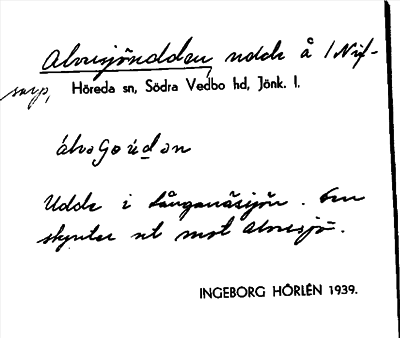 Alvresjöudden, udde å 1 Nif-
sarp, Höreda sn, Södra Vedbo hd, Jönk. l.
Udde i Långanäsjön. Den
skjuter ut mot Alvresjö.
INGEBORG HÖRLÉN 1939.